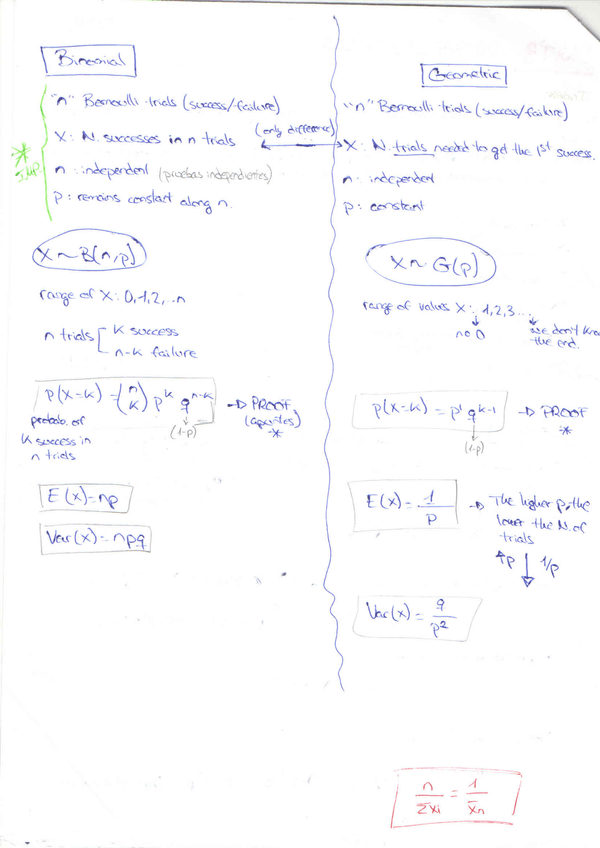 Binomial
"n" Bernoulli trials (success/failure)
X: N. successes in n trials
n: independent (pruebas independientes)
p: remains constant along n.
* IMP.
(only difference)
X ~ B(n,p)
range of X: 0,1,2,..n
n trials [ K success
n-k failure
P(X=K) = (n K) p^k q^n-k
(1-p)
→ PROOF
(apuntes)
*
probab. of
K success in
n trials
E(x)=np
Var(x)=npq
Geometric
"n" Bernoulli trials (success/failure)
X: N. trials needed to get the 1st success.
n: independent
p: constant
X ~ G(p)
range of values X: 1,2,3...
no 0
we don't kno
the end.
P(X=K) = p^1 q^k-1
(1-p)
→ PROOF
*
E(x) = 1/p
→ The higher p, the
lower the N. of
trials
↑p ↓ 1/p
Var(x) = q/p^2
n/Σxi = 1/x̄n